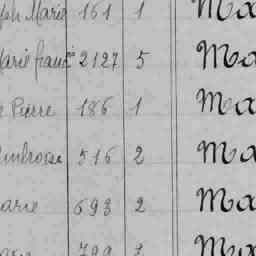 Marie 161 1 Ma
Marie franç 2127 5 Ma
Pierre 186 1 Ma
Ambroise 516 2 Ma
Marie 693 2 Ma
Ma